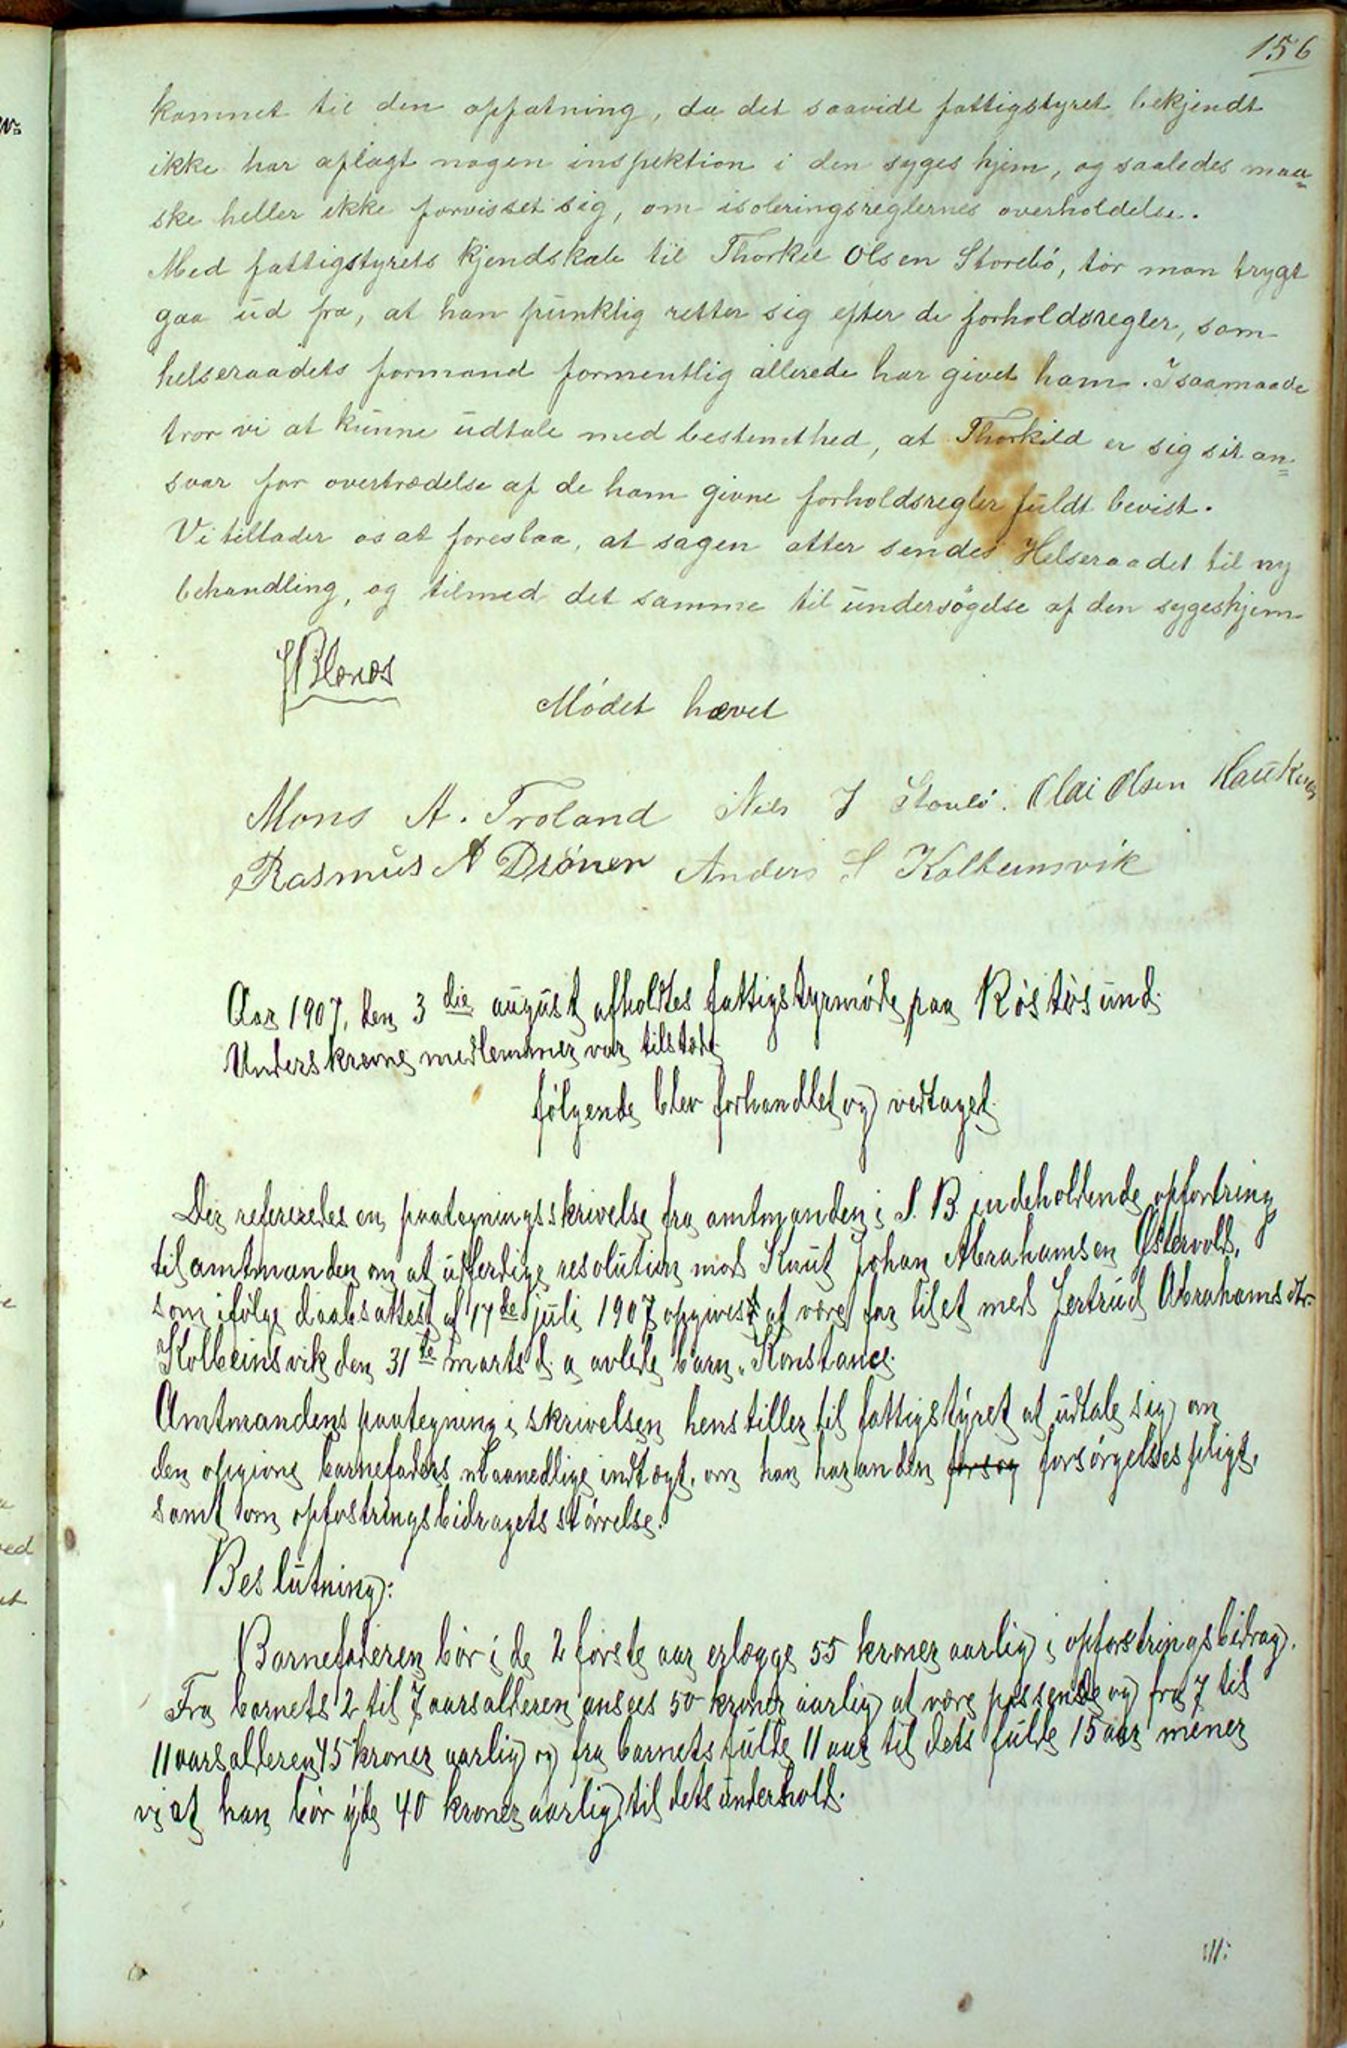 156
kommet til den opfatning, da det saavidt fattigstyret bekjendt
ikke har aflagt nogen inspektion i den syges hjem, og saaledes maa=
ske heller ikke forvisset sig, om isoleringsreglernes overholdelse.
Med fattigstyrets kjendskab til Thorkil Olsen Storebö, tör man trygt
gaa ud fra, at han punklig retter sig efter de forholdsregler, som
helseraadets formand formentlig allerede har givet ham. I saamaade
tror vi at kunne udtale med bestemthed, at Thorkild er sig sit an=
svar for overtrædelse af de ham givne forholdsregler fuldt bevist.
Vi tillader os at foreslaa, at sagen atter sendes Helseraadet til ny
behandling, og tilmed det samme til undersögelse af den sygeshjem
Mödet hævet
Mons A. Troland Nils J Storebö. Olai Olsen Haukenes
Rasmus A Drönen Anders S Kolbeinsvik
Aar 1907, den 3die august afholdtes fattigstyrmöde paa Röstösund.
Underskrevne medlemmer var tilstæde.
følgende blev forhandlet og vedtaget.
Der refereredes en paategningsskrivelse fra amtmanden i S. B. indeholdende opfortring
til amtmanden om at udferdige resolution mod Knut Johan Abrahamsen Östervold,
som ifölge daabsattest af 17de juli 1907 opgivest at være far til et med Jertrud Abrahamsdtr.
Kolbeinsvik den 31te marts d. a avlede barn, Konstance.
Amtmandens paategning i skrivelsen henstiller til fattigstyret at udtale sig om
den opgivne barnefaders maanedlige indtægt, om han har anden forsøg forsörgelsespligt,
samt om opfostringsbidragets störrelse.
Beslutning:
Barnefaderen bör i de 2 förste aar erlægge 55 kroner aarlig i opforstringsbidrag.
Fra barnets 2 til 7 aarsalderen ansees 50 kroner aarlig at være passende og fra 7 til
11 aarsalderen 45 kroner aarlig og fra barnets fulde 11 aar til dets fulde 15 aar mener
vi at han bör yde 40 kroner aarlig til dets underhold.
:///: